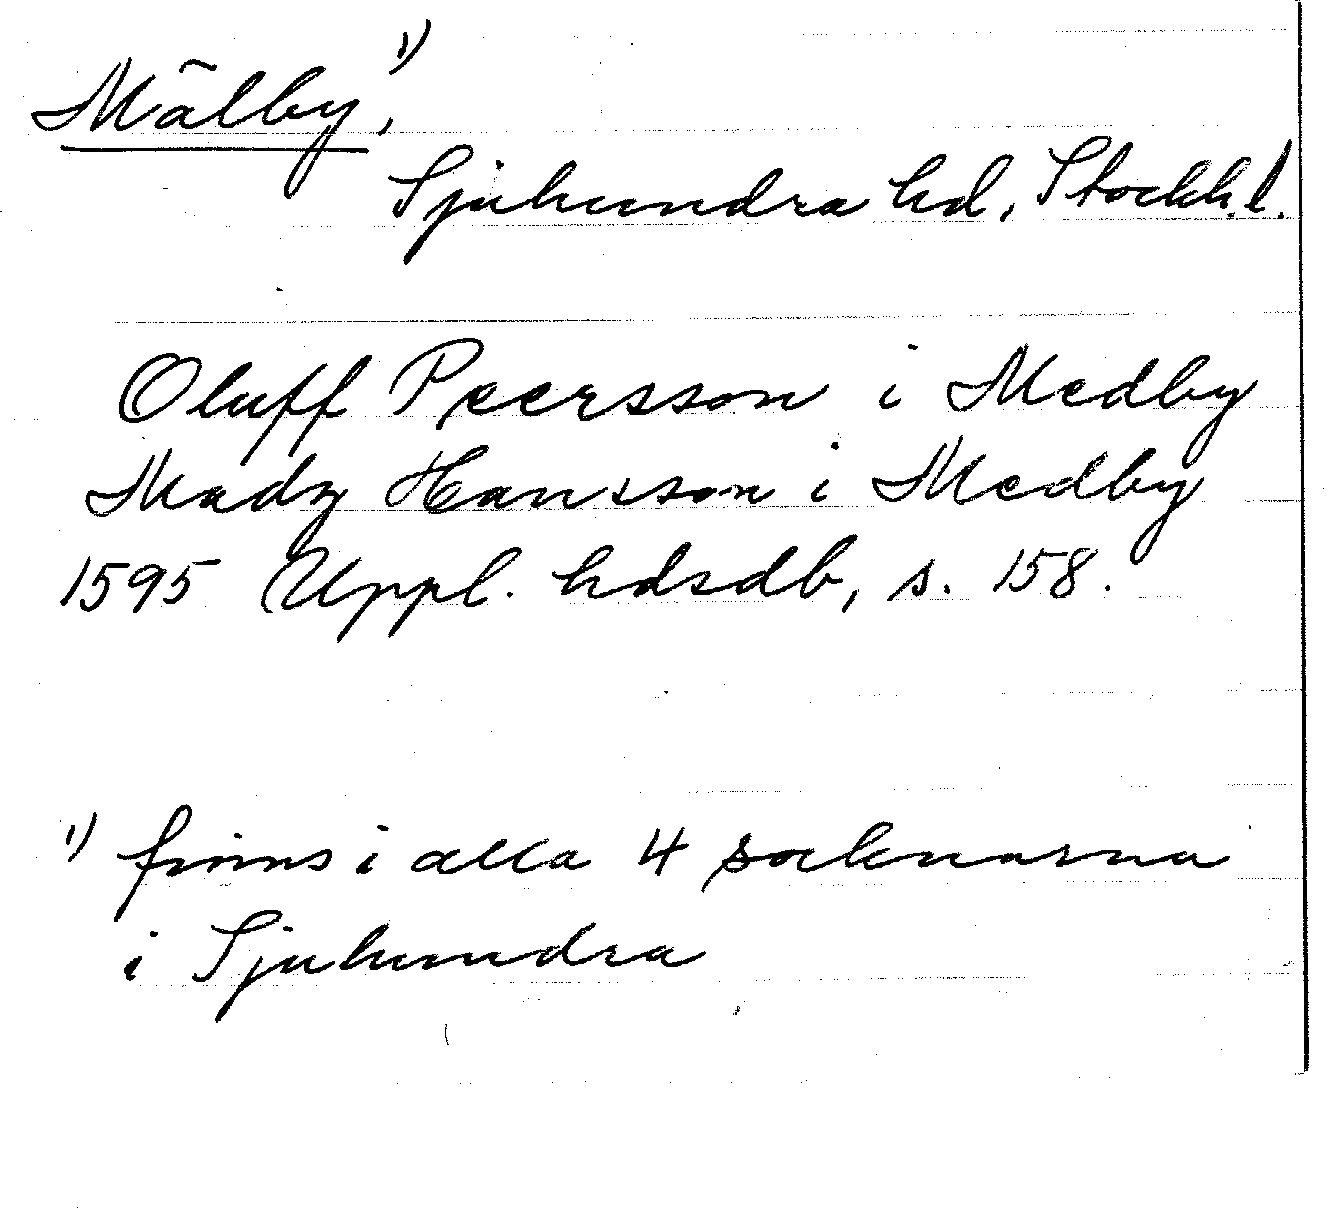 Mälby,¹⁾
Sjuhundra hd, Stockh. l.
Oluff Peersson i Medby
Madz Hansson i Medby
1595 Uppl. hdsdb, s. 158.
¹⁾ finns i alla 4 socknarna
i Sjuhundra